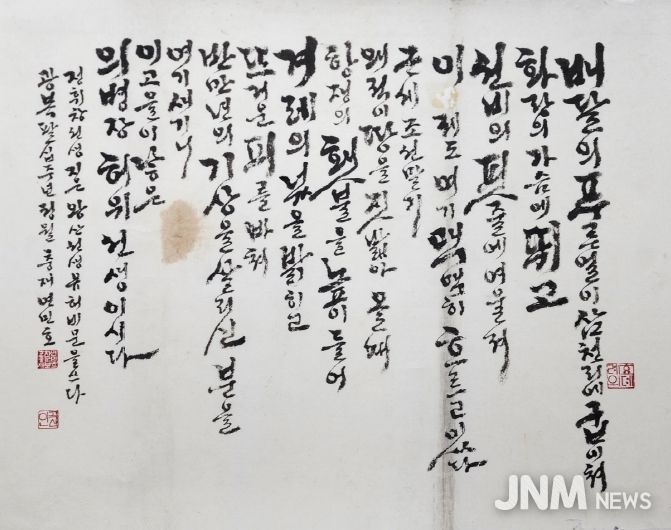 배달의 푸른 얼이 삼천리에 굽이쳐
화랑의 가슴에 뛰고
선비의 핏줄에 여울져
이제도 여기 맥맥히 흐르고 있다
근세 조선 말기
왜적이 땅을 짓밟아 올 때
항쟁의 횃불을 높이 들어
겨레의 넋을 밝히고
뜨거운 피를 바쳐
반만년의 기상을 살리신 분을
여기 새기니
이 고을이 낳은
의병장 허위 선생이시다
정휘창 선생 지은 왕산 선생 유허비문을 쓰다
광복 팔십주년 정월
JNM NEWS